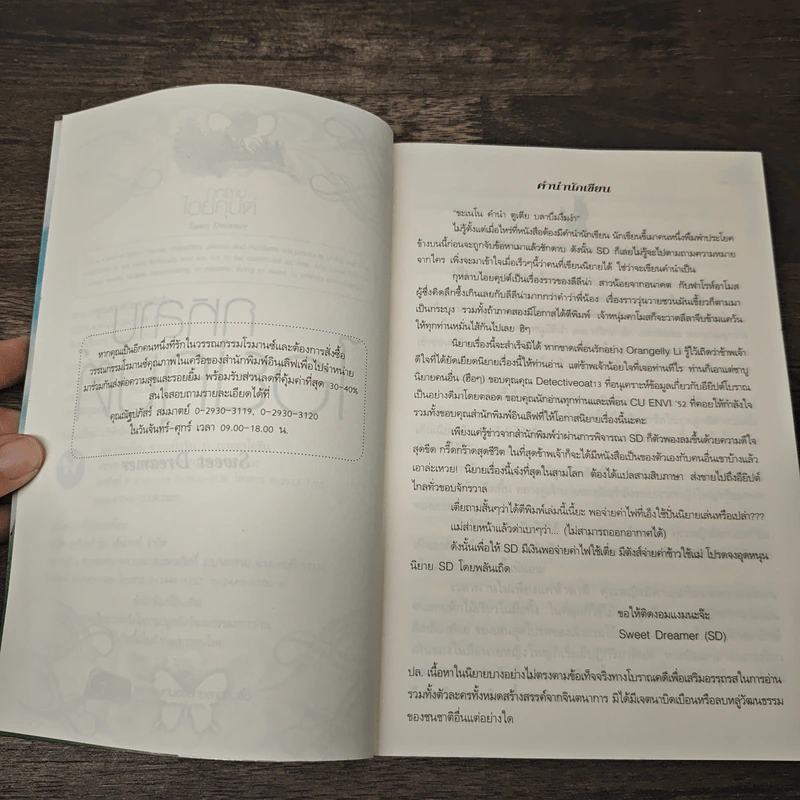 หากคุณเป็นอีกคนหนึ่งที่รักในวรรณกรรมโรมานซ์และต้องการสั่งซื้อ
วรรณกรรมโรมานซ์คุณภาพในเครือของสำนักพิมพ์อินเลิฟเพื่อไปจำหน่าย
มาร่วมกันส่งต่อความสุขและรอยยิ้ม พร้อมรับส่วนลดที่คุ้มค่าที่สุด 30-40%
สนใจสอบถามรายละเอียดได้ที่
คุณณัฐปภัสร์ สมมาตย์ 0-2930-3119, 0-2930-3120
ในวันจันทร์-ศุกร์ เวลา 09.00-18.00 น.
Sweet Dreamer
คำนำนักเขียน
"ชะเนโน คำนำ ตูเตีย บลาบึมงึมงำ"
ไม่รู้ตั้งแต่เมื่อไหร่ที่หนังสือต้องมีคำนำนักเขียน นักเขียนขี้เมาคนหนึ่งพึมพำประโยค
ข้างบนนี้ก่อนจะถูกจับข้อหาเมาแล้วชักดาบ ดังนั้น SD ก็เลยไม่รู้จะไปตามถามความหมาย
จากใคร เพิ่งจะมาเข้าใจเมื่อเร็วๆนี้ว่าคนที่เขียนนิยายได้ ใช่ว่าจะเขียนคำนำเป็น
กุหลาบไอยคุปต์เป็นเรื่องราวของลีลีน่า สาวน้อยจากอนาคต กับฟาโรห์อาโมส
ผู้ซึ่งคิดลึกซึ้งเกินเลยกับลีลีน่ามากกว่าคำว่าพี่น้อง เรื่องราววุ่นวายชวนมันเขี้ยวก็ตามมา
เป็นกระบุง รวมทั้งถ้าภาคสองมีโอกาสได้ตีพิมพ์ เจ้าหนุ่มคาโมสก็จะวาดลีลาจีบข้ามแคว้น
ให้ทุกท่านหมั่นไส้กันไปเลย ฮิๆ
นิยายเรื่องนี้จะสำเร็จมิได้ หากขาดเพื่อนรักอย่าง Orangelly Li รู้ไว้เถิดว่าข้าพเจ้า
ดีใจที่ได้ยัดเยียดนิยายเรื่องนี้ให้ท่านอ่าน แต่ข้าพเจ้าน้อยใจที่เจอท่านทีไร ท่านก็เอาแต่ชาบู
นิยายคนอื่น (ฮือๆ) ขอบคุณคุณ Detectiveoat13 ที่อนุเคราะห์ข้อมูลเกี่ยวกับอียิปต์โบราณ
เป็นอย่างดีมาโดยตลอด ขอบคุณนักอ่านทุกท่านและเพื่อน CU ENVI '52 ที่คอยให้กำลังใจ
รวมทั้งขอบคุณสำนักพิมพ์อินเลิฟที่ให้โอกาสนิยายเรื่องนี้นะคะ
เพียงแค่รู้ข่าวจากสำนักพิมพ์ว่าผ่านการพิจารณา SD ก็ตัวพองลมขึ้นด้วยความดีใจ
สุดขีด กรี๊ดกร๊าดสุดชีวิต ในที่สุดข้าพเจ้าก็จะได้มีหนังสือเป็นของตัวเองกับคนอื่นเขาบ้างแล้ว
เอาล่ะเหวย! นิยายเรื่องนี้เจ๋งที่สุดในสามโลก ต้องได้แปลสามสิบภาษา ส่งขายไปถึงอียิปต์
ไกลทั่วขอบจักรวาล
เตี่ยถามสั้นๆว่าได้ตีพิมพ์เล่มนี้เนี้ยะ พอจ่ายค่าไฟที่เอ็งใช้ปั่นนิยายเล่นหรือเปล่า???
แม่ส่ายหน้าแล้วด่าเบาๆว่า... (ไม่สามารถออกอากาศได้)
ดังนั้นเพื่อให้ SD มีเงินพอจ่ายค่าไฟใช้เตี่ย มีตังส์จ่ายค่าข้าวใช้แม่ โปรดจงอุดหนุน
นิยาย SD โดยพลันเถิด
ขอให้ติดงอมแงมนะจ๊ะ
Sweet Dreamer (SD)
ปล. เนื้อหาในนิยายบางอย่างไม่ตรงตามข้อเท็จจริงทางโบราณคดีเพื่อเสริมอรรถรสในการอ่าน
รวมทั้งตัวละครทั้งหมดสร้างสรรค์จากจินตนาการ มิได้มีเจตนาบิดเบือนหรือลบหลู่วัฒนธรรม
ของชนชาติอื่นแต่อย่างใด